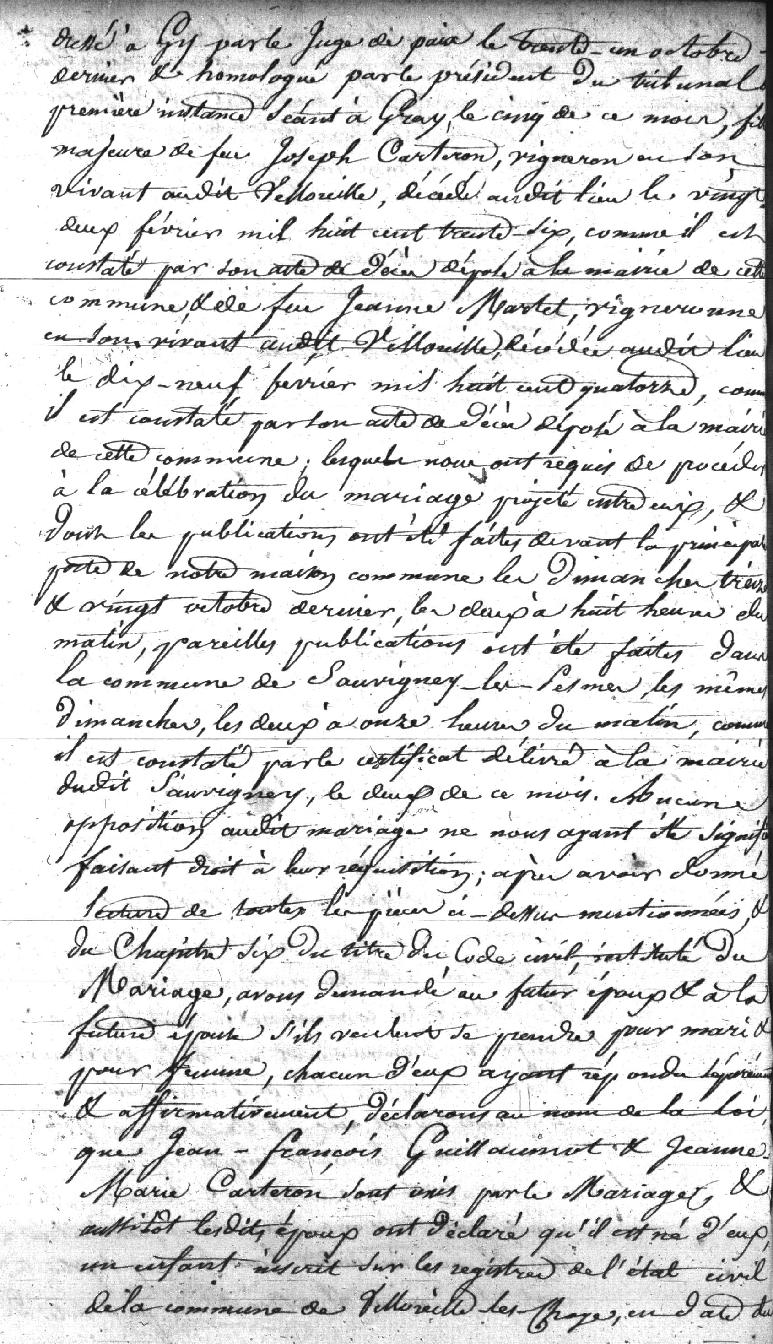 dressé à Gy par le Juge de paix le trente-un octobre
dernier & homologué par le président du tribunal
première instance séant à Gray, le cinq de ce mois, fille
majeure de feu Joseph Carteron, vigneron en son
vivant audit Velloreille, décédé audit lieu le vingt
deux février mil huit cent trente-six, comme il est
constaté par son acte de décès déposé à la mairie de cette
commune & de feu Jeanne Martet, vigneronne
en son vivant audit Velloreille, décédée audit lieu
le dix-neuf février mil huit cent quatorze, comme
il est constaté par son acte de décès déposé à la mairie
de cette commune; lesquels nous ont requis de procéder
à la célébration du mariage projeté entre eux, &
dont les publications ont été faites devant la principale
porte de notre maison commune les dimanches treize
& vingt octobre dernier, les deux à huit heures du
matin, pareilles publications ont été faites dans
la commune de Sauvigney-les-Pesmes, les mêmes
dimanches, les deux à onze heures du matin, comme
il est constaté par le certificat délivré à la mairie
dudit Sauvigney, le deux de ce mois. Aucune
opposition audit mariage ne nous ayant été signifiée
faisant droit à leur réquisition; après avoir donné
lecture de toutes les pièces ci-dessus mentionnées, &
du Chapitre six du titre du Code civil, intitulé du
Mariage, avons demandé au futur époux & à la
future épouse s'ils veulent se prendre pour mari &
pour femme, chacun d'eux ayant répondu séparément
& affirmativement, déclarons au nom de la loi,
que Jean-françois Guillaumot & Jeanne-
Marie Carteron, sont unis par le Mariage, &
aussitôt lesdits époux ont déclaré qu'il est né d'eux,
un enfant inscrit sur les registres de l'état civil
de la commune de Velloreille-les-Choye, en date du